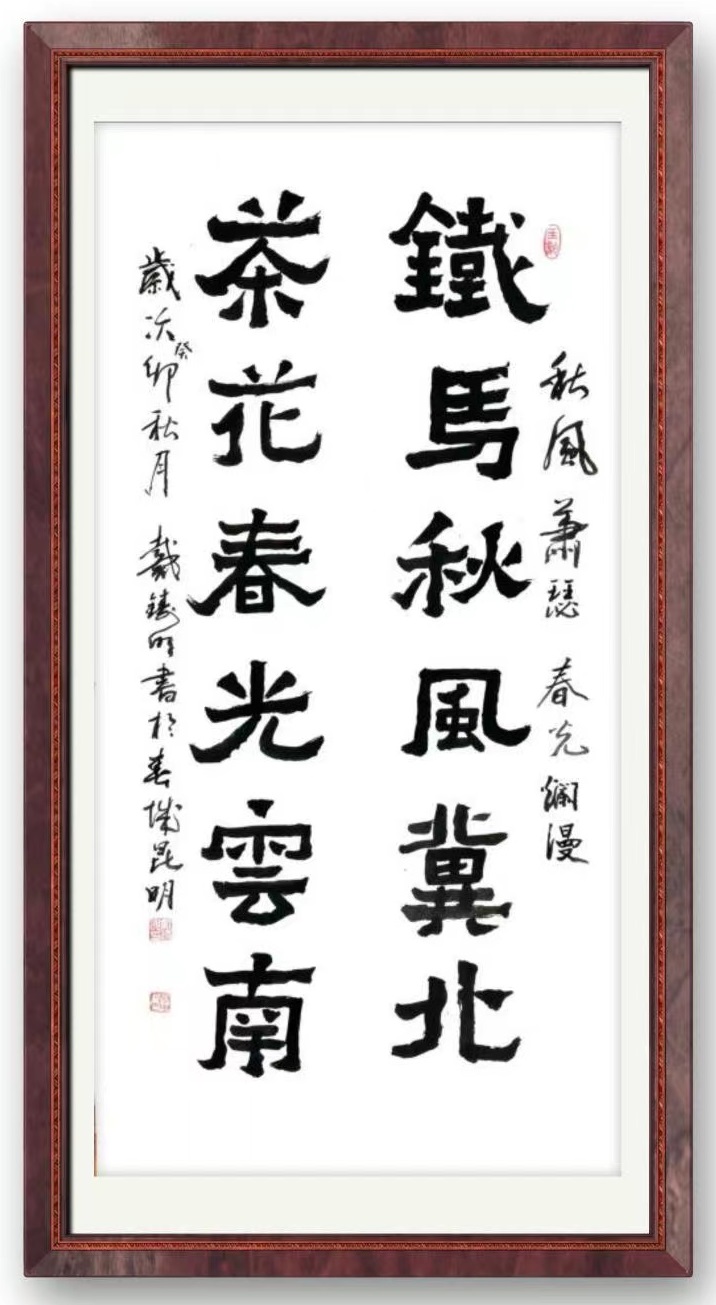 秋風蕭瑟 春光爛漫
鐵馬秋風冀北
茶花春光雲南
歲次癸卯秋月 戴鑄明書於春城昆明